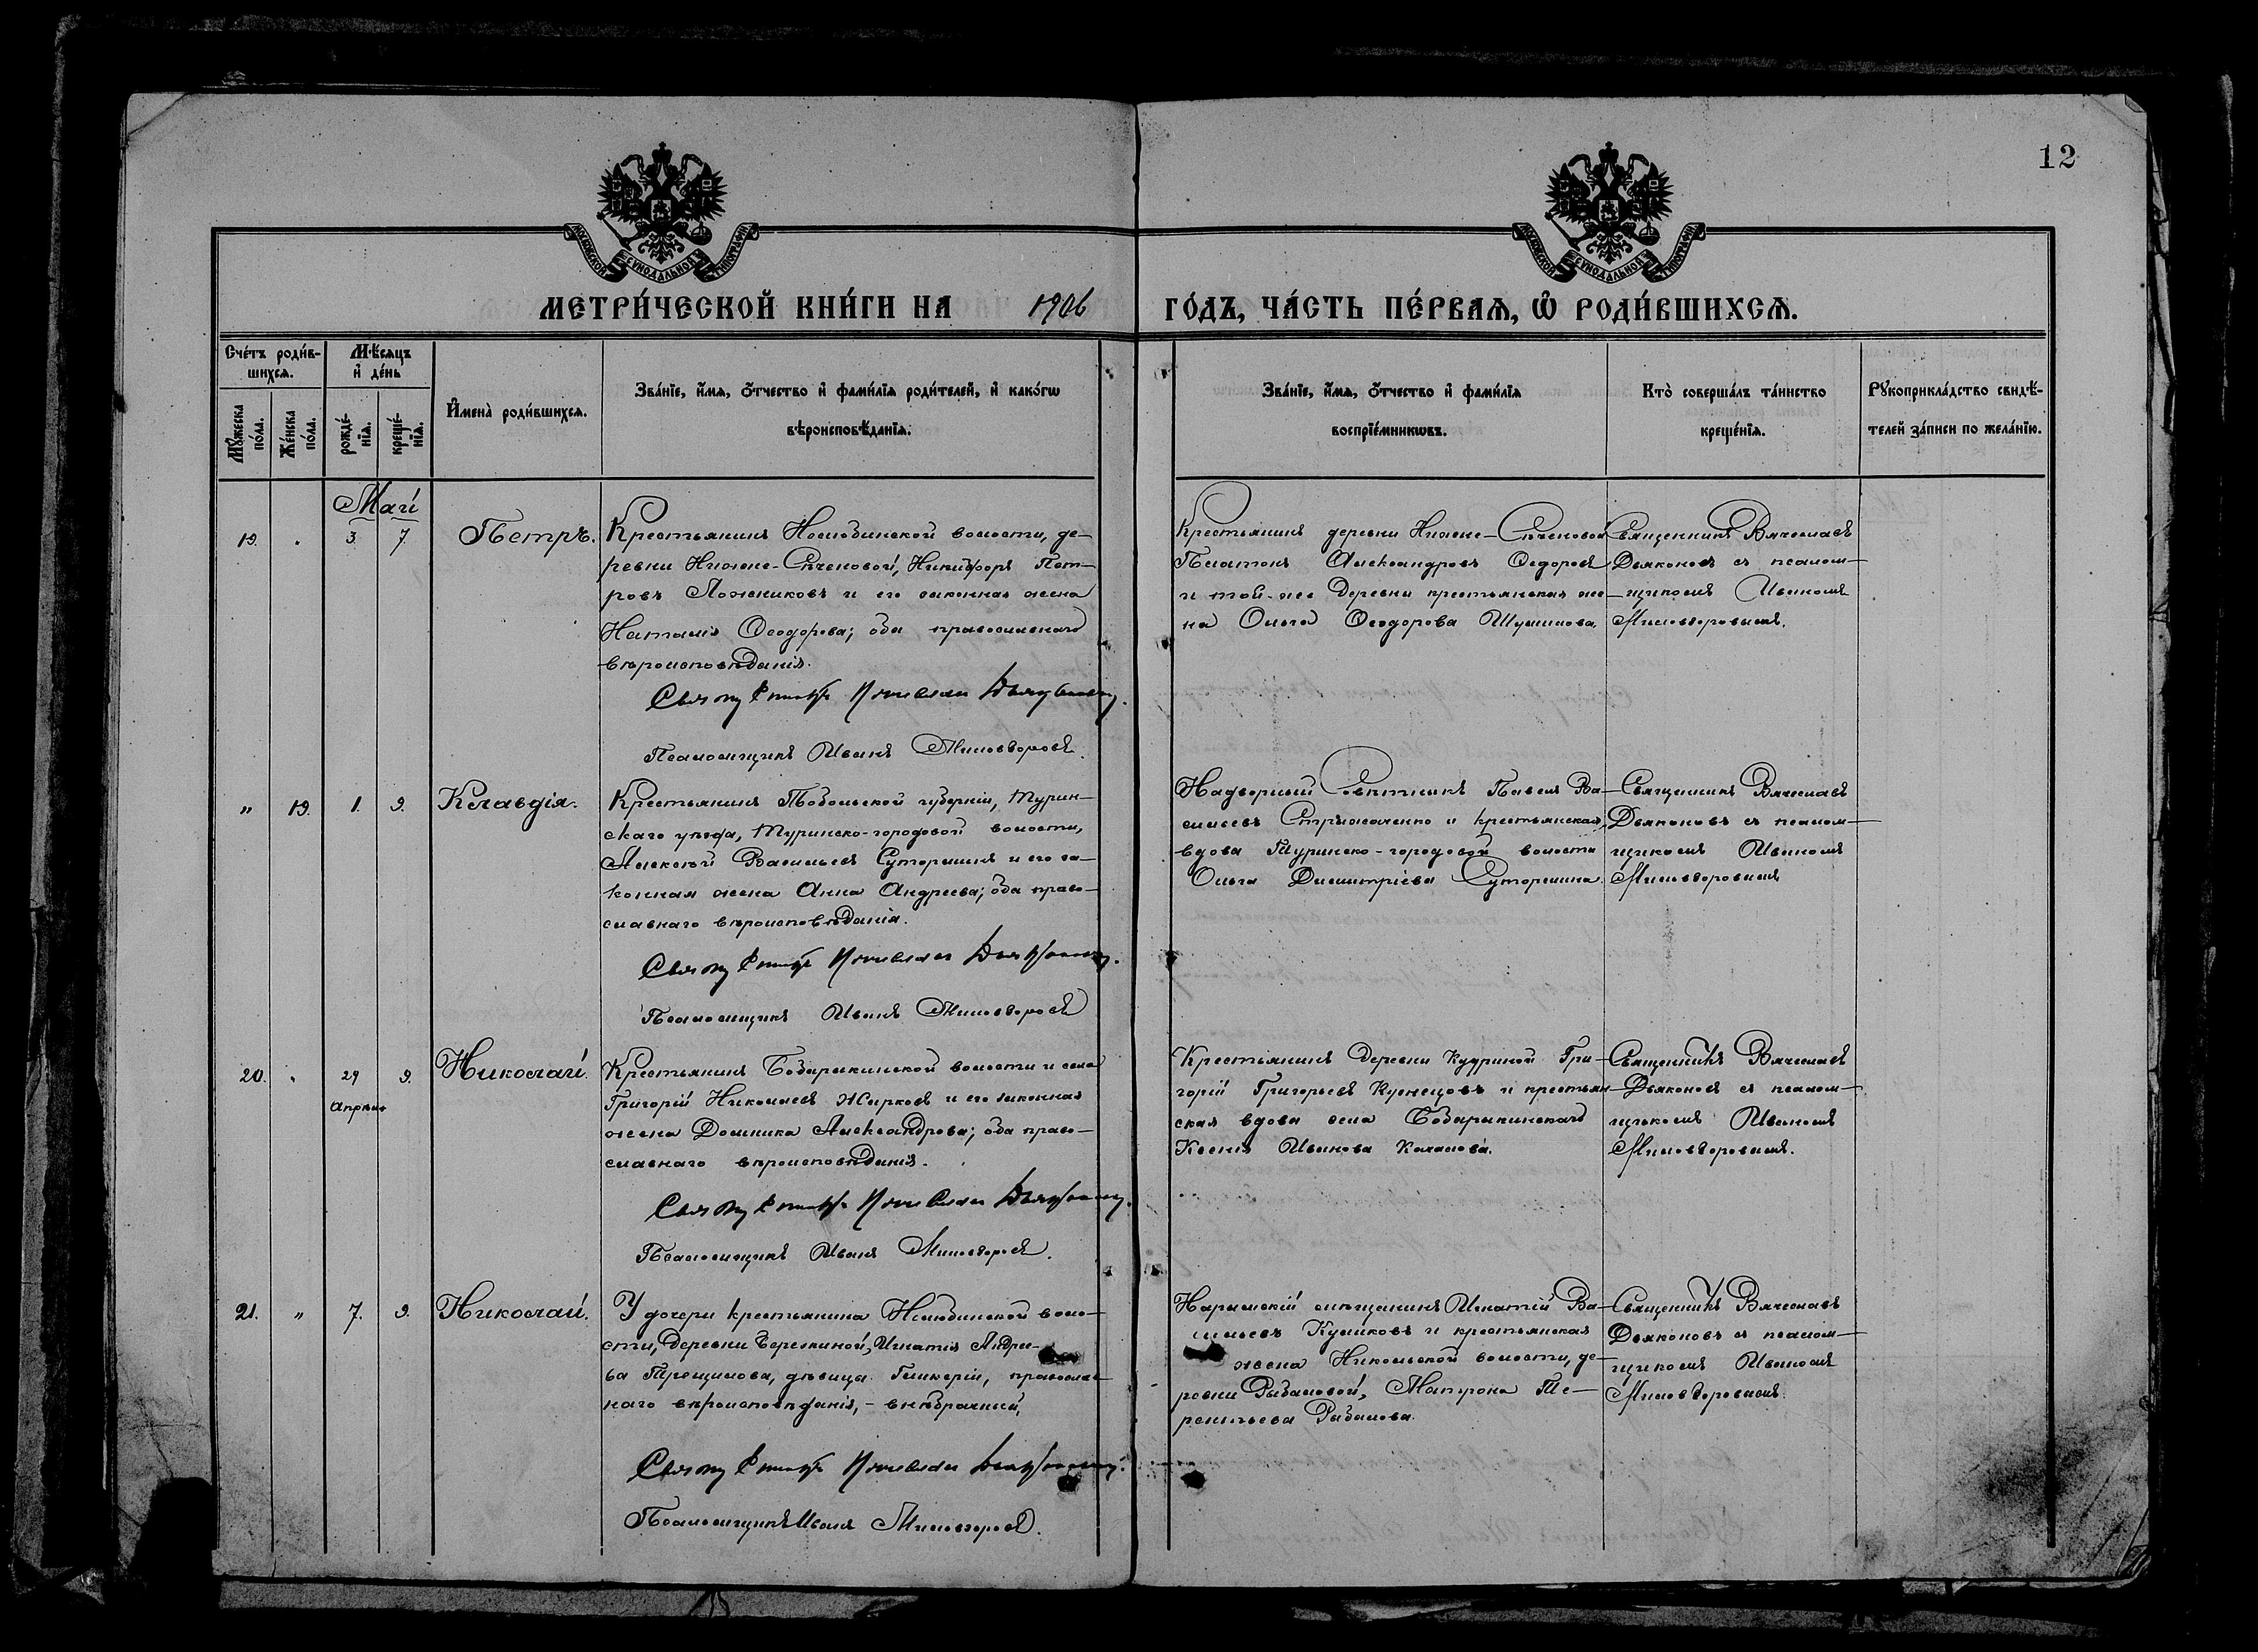 12
МОСКОВСКОЙ СѴНОДАЛЬНОЙ ТИПОГРАФІИ
МОСКОВСКОЙ СѴНОДАЛЬНОЙ ТИПОГРАФІИ
МЕТРИ́ЧЕСКОЙ КНИ́ГИ НА 1906 ГО́ДЪ, ЧА́СТЬ ПЕ́РВАѦ, Ѡ҆ РОДИ́ВШИХСѦ.
Сче́тъ роди́в-
шихсѧ.
Мѣ́сѧцъ
и҆ де́нь
Мꙋ́жеска
по́ла.
Же́нска
по́ла.
рожде́-
нїѧ.
креще́-
нїѧ.
И҆мена̀ роди́вшихсѧ.
Зва́нїе, и҆́мѧ, ѻ҆́тчество и҆ фами́лїѧ роди́телей, и҆ како́гѡ
вѣроисповѣ́данїѧ.
Зва́нїе, и҆́мѧ, ѻ҆́тчество и҆ фами́лїѧ
воспрїе́мникѡвъ.
Кто̀ соверша́лъ та́инство
креще́нїѧ.
Рꙋкоприкла́дство свидѣ́-
телей за́писи по жела́нїю.
Май
19. " 3 7 Петръ.
Крестьянинъ Нелюбинской волости, де-
ревни Нижне-Сѣченовой, Никифоръ Пет-
ровъ Ложниковъ и его законная жена
Наталія Ѳеодорова; оба православнаго
вѣроисповѣданія.
Псаломщикъ Иванъ Миловзоровъ.
Крестьянинъ деревни Нижне-Сѣченовой
Платонъ Александровъ Ѳедоровъ
и той-же деревни крестьянская же-
на Ольга Ѳеодорова Шумилова.
Священникъ Вячеславъ
Дьяконовъ съ псалом-
щикомъ Иваномъ
Миловзоровымъ.
" 19. 1. 9. Клавдія.
Крестьянинъ Тобольской губерніи, Турин-
скаго уѣзда, Туринско-городовой волости,
Алексѣй Васильевъ Сутормин и его за-
конная жена Анна Андреева; оба право-
славнаго вѣроисповѣданія.
Псаломщикъ Иванъ Миловзоровъ
Надворный Совѣтникъ Павелъ Ва-
сильевъ и крестьянская
вдова Туринско-городовой волости
Ольга Димитріева Сутормина.
Священникъ Вячеславъ
Дьяконовъ съ псалом-
щикомъ Иваномъ
Миловзоровымъ
20. " 29 9. Николай.
Апрѣля
Крестьянинъ Бобарыкинской волости и села
Григорій Николаевъ Жирковъ и его законная
жена Домника Александрова; оба право-
славнаго вѣроисповѣданія.
Псаломщикъ Иванъ Миловзоровъ.
Крестьянинъ деревни Кудриной Гри-
горій Григорьевъ Кузнецовъ и крестьян-
ская вдова села Бобарыкинскаго
Ксенія Иванова
Священникъ Вячеславъ
Дьяконовъ съ псалом-
щикомъ Иваномъ
Миловзоровымъ.
21. " 7. 9. Николай.
У дочери крестьянина Нелюбинской воло-
сти, деревни Березкиной, Игнатія Андрее-
ва Трощилова, дѣвицы Гликеріи, православ-
наго вѣроисповѣданія, - внѣбрачный.
Псаломщикъ Иванъ Миловзоровъ.
Нарымскій мѣщанинъ Игнатій Ва-
сильевъ Куликовъ и крестьянская
жена Никольской волости, де-
ревни Рыбаловой, Матрона Те-
рентьева Рыбалова.
Священникъ Вячеславъ
Дьяконовъ съ псалом-
щикомъ Иваномъ
Миловзоровымъ.